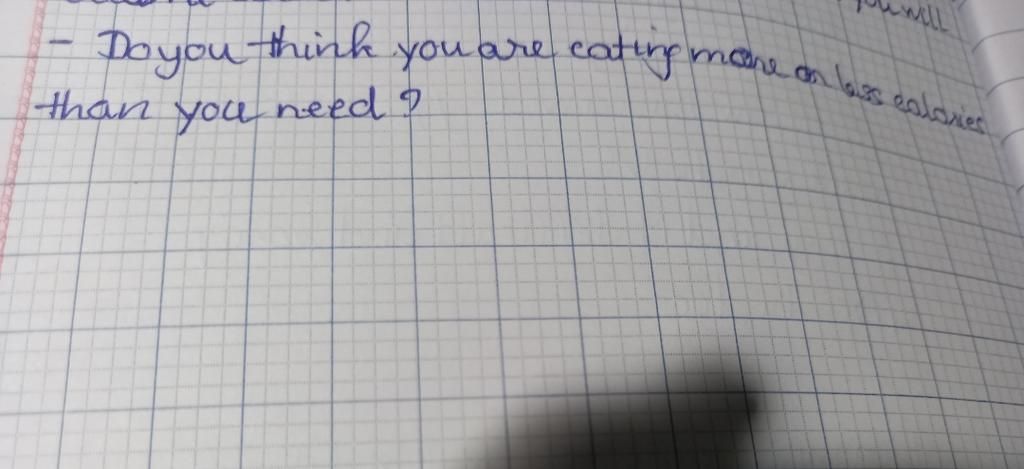 you will
- Do you think you are eating more or less calories
than you need?